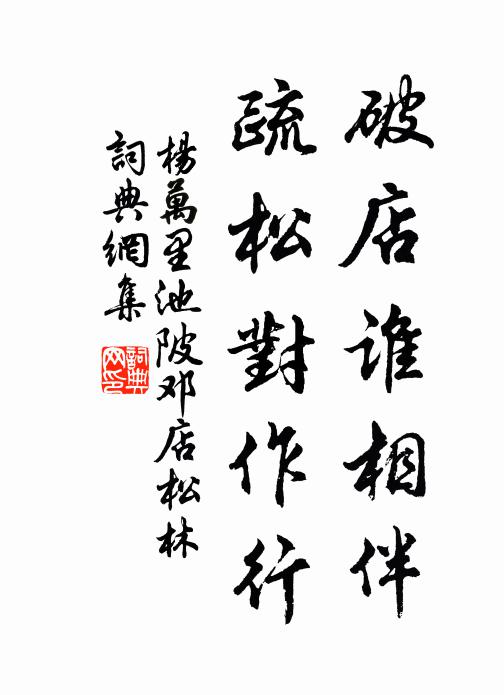 破店谁相伴
疏松對作行
楊萬里池陂邓店松林
詞典網集
詞典网印